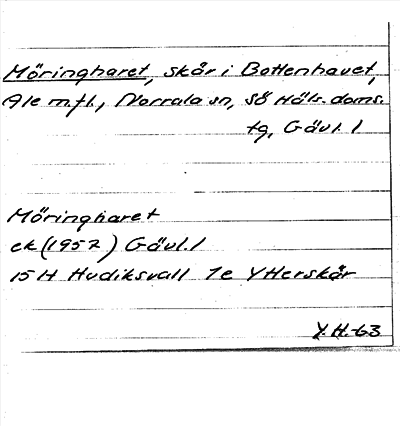 Möringharet, skär i Bottenhavet,
Ale m.fl., Norrala sn, Sö Häls. doms.
tg, Gävl. l
Möringharet
ek (1957) Gävl. l
15H Hudiksvall 1e Ytterskär
Y.H.-63